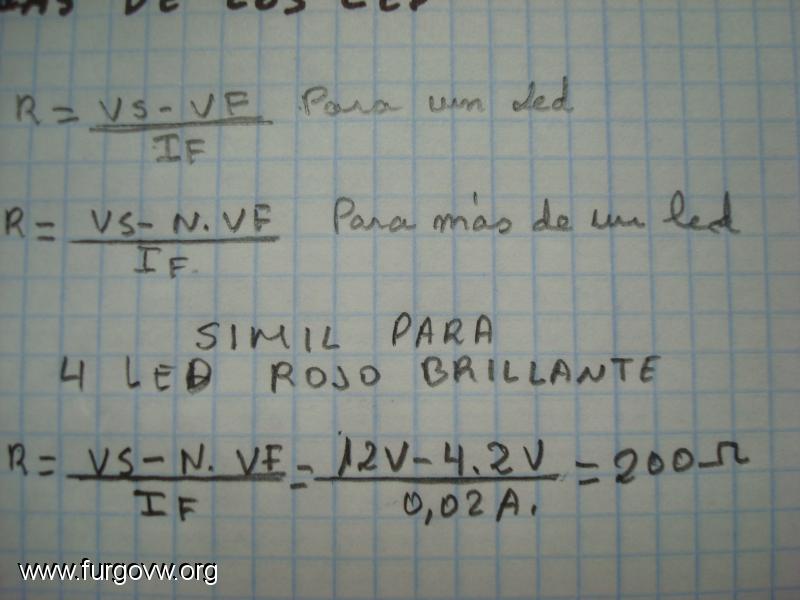 DE LOS LED
R = VS - VF Para un led
IF
R = VS - N. VF Para más de un led
IF
SIMIL PARA
4 LED ROJO BRILLANTE
R = VS - N. VF = 12V - 4. 2V = 200 Ω
IF 0,02 A.
www.furgovw.org